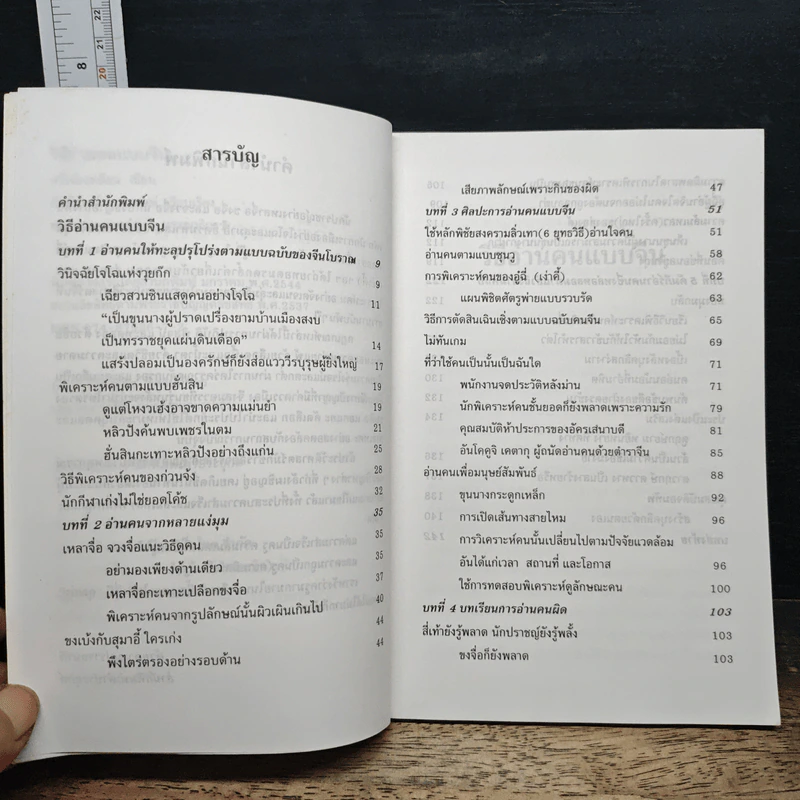 8
22
21
20
สารบัญ
คำนำสำนักพิมพ์
วิธีอ่านคนแบบจีน
บทที่ 1 อ่านคนให้ทะลุปรุโปร่งตามแบบฉบับของจีนโบราณ 9
วินิจฉัยโจโฉแห่งวุยก๊ก 9
เฉียวสวนซินแสดูคนอย่างโจโฉ 11
“เป็นขุนนางผู้ปราดเปรื่องยามบ้านเมืองสงบ
เป็นทรราชยุคแผ่นดินเดือด” 14
แสร้งปลอมเป็นองครักษ์ก็ยังส่อแววรีรบุรุษผู้ยิ่งใหญ่ 17
พิเคราะห์คนตามแบบฮั่นสิน 19
ดูแต่โหงวเฮ้งอาจขาดความแม่นยำ 19
หลิวปังค้นพบเพชรในตม 21
ฮั่นสินกะเทาะหลิวปังอย่างถึงแก่น 25
วิธีพิเคราะห์คนของก่วนจ้ง 28
นักกีฬาเก่งไม่ใช่ยอดโค้ช 32
บทที่ 2 อ่านคนจากหลายแง่มุม 35
เหลาจื่อ จวงจื่อแนะวิธีดูคน 35
อย่ามองเพียงด้านเดียว 35
เหลาจื่อกะเทาะเปลือกขงจื่อ 37
พิเคราะห์คนจากรูปลักษณ์นั้นผิวเผินเกินไป 40
ขงเบ้งกับสุมาอี้ ใครเก่ง 44
พึงไตร่ตรองอย่างรอบด้าน 44
เสียภาพลักษณ์เพราะกินของผิด 47
บทที่ 3 ศิลปะการอ่านคนแบบจีน 51
ใช้หลักพิชัยสงครามลิ่วเทา(6 ยุทธวิธี)อ่านใจคน 51
อ่านคนตามแบบซุนวู 58
การพิเคราะห์คนของอู๋ฉี่ (เง่าคี้) 62
แผนพิชิตศัตรูพ่ายแบบรวบรัด 63
วิธีการตัดสินเฉินเชิ่งตามแบบฉบับคนจีน 65
ไม่ทันเกม 69
ที่ว่าใช้คนเป็นนั้นเป็นฉันใด 71
พนักงานจดประวัติหลังม่าน 71
นักพิเคราะห์คนชั้นยอดก็ยังพลาดเพราะความรัก 79
คุณสมบัติห้าประการของอัครเสนาบดี 81
อันโคคูจิ เคตากุ ผู้ถนัดอ่านคนด้วยตำราจีน 85
อ่านคนเพื่อมนุษย์สัมพันธ์ 88
ขุนนางกระดูกเหล็ก 92
การเปิดเส้นทางสายไหม 96
การวิเคราะห์คนนั้นเปลี่ยนไปตามปัจจัยแวดล้อม
อันได้แก่เวลา สถานที่ และโอกาส 96
ใช้การทดสอบพิเคราะห์ดูลักษณะคน 100
บทที่ 4 บทเรียนการอ่านคนผิด 103
สี่เท้ายังรู้พลาด นักปราชญ์ยังรู้พลั้ง 103
ขงจื่อก็ยังพลาด 103